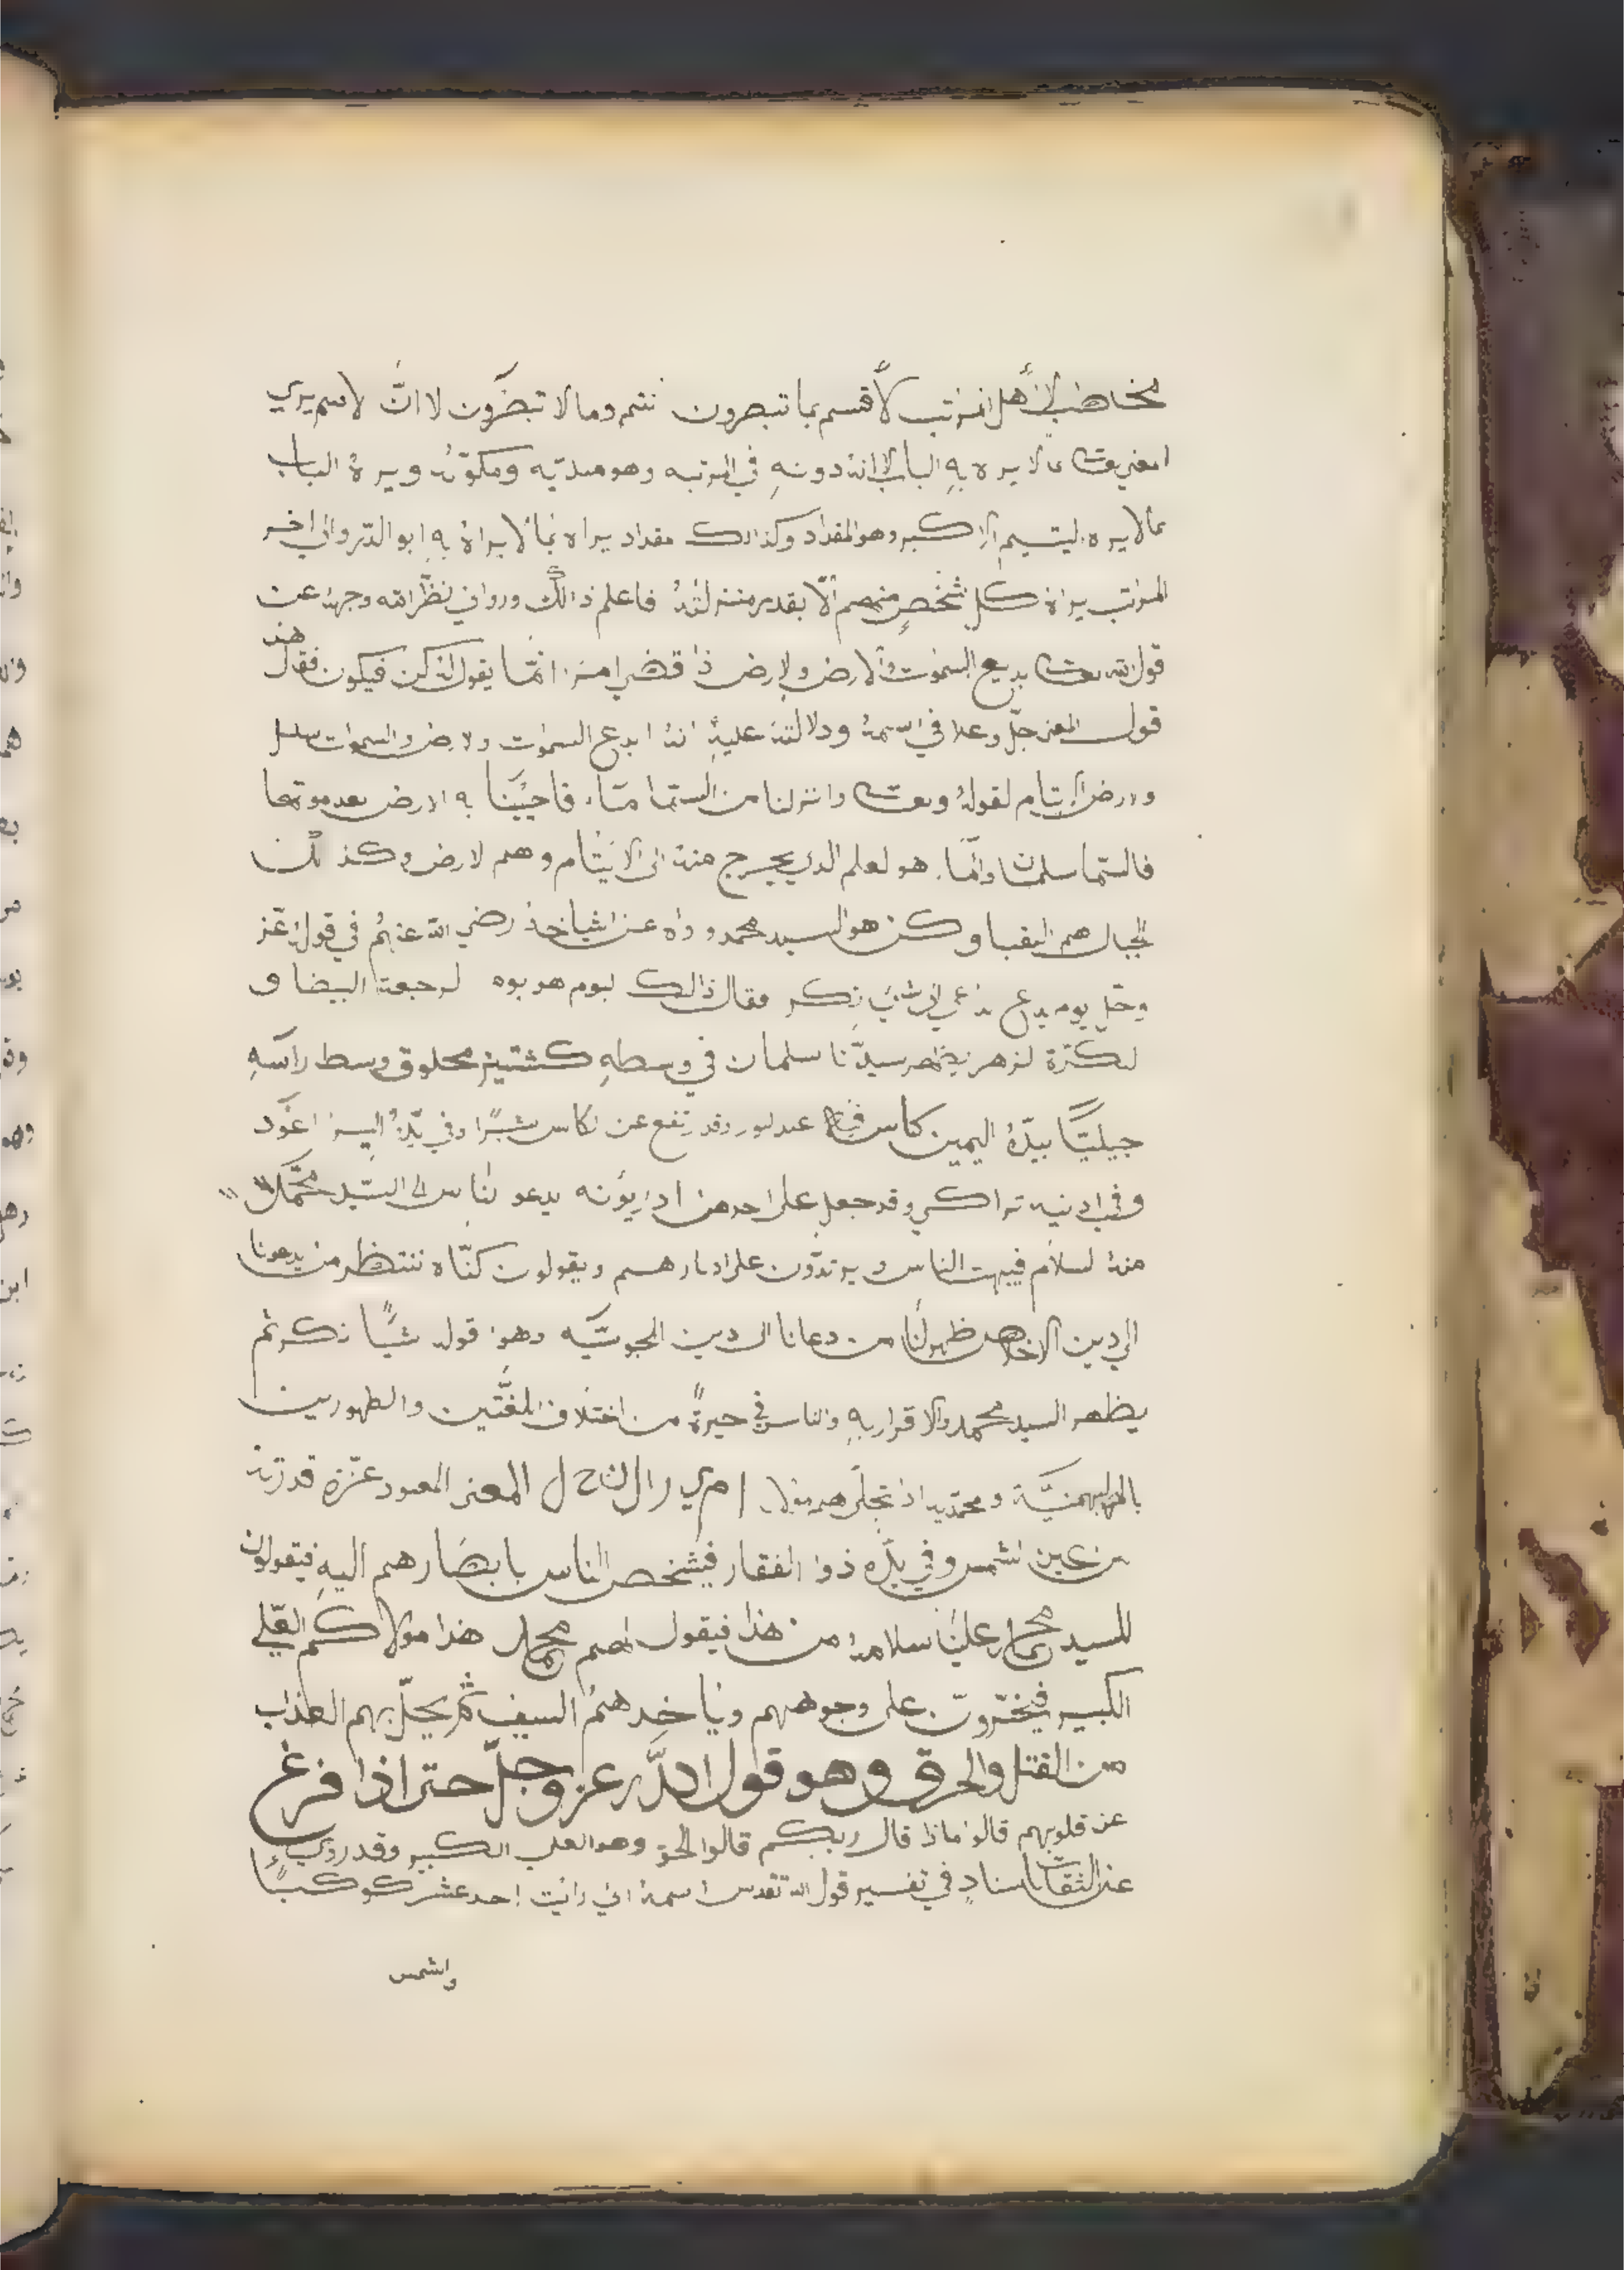 مخاطب لاهل المراتب لا أقسم بما تبصرون نتم وما لا تبصرون لا انّ لاسم يري
المعني بما لا يره به الباب لانه دونه في المرتبه وهو مبديه ومكونه ويره الباب
بما لا يره اليتيم الاكبر وهو المقداد وكذالك مقداد يراه بما لا يراه به ابو الدر والي اخر
المراتب يراه كل شخص منهم الا بقدر منزلته فاعلم ذالك وروا في نظر الله وجهه عن
قول الله بديع السموت والارض ولارض ذا قضي امرا انما يقول له كن فيكون فقال هذ
قول المعنى جل وعلا في اسمه ودلالته عليه انه ابدع السموات ولارض والسموات سلسل
ولارض الايتام لقوله وانزلنا من السما مآء فاحيينا به الارض بعد موتها
فالسما سلمان والما هو لعلم الدي يخرج منه الى الايتام وهم لارض وكذلك
الجبال هم النقبا و كن هو السيد محمد ورواه عن اشياخه رضي الله عنهم في قوله عز
وجل يوم يدع الداعي الى شيء نكر فقال ذالك ليوم هو يوم لرجعة البيضا و
لكرة لزهر يظهر سيدنا سلمان في وسطه كشتيز محلوق وسط راسه
بيده اليمين كاس فيه عبد لنور وقد رتفع عن لكاس شبرا وفي يده اليسر اعود
وفي ادنيه تراكي وقد جعل على احد من ادنيه يدعو لناس الى السيد محمد
منه لسلام فيبهت الناس ويرتدون على ادبارهم ويقولون كنا ننتظر من يدعونا
الي دين الاخلاص ظهر لنا من دعانا الى دين المجوسيه وهو قوله شيا نكر ثم
يظهر السيد محمد والاقرار به والناس في حيرة من اختلاف اللغتين والظهورين
بالبهمنية و محمديه اذ تجلى هم مولا ا م ي ر ا ل ن ح ل المعنى المعبود عزة قدرته
من عين الشمس وفي يده ذوا الفقار فيشخص الناس بابصارهم اليه فيقولون
للسيد محمد علينا سلامه من هذا فيقول لهم محمد هذا مولاكم العلي
الكبير فيخرون على وجوههم وياخدهم السيف ثم يحل بهم العذاب
من القتل والحرق وهو قول الله عز وجل حتى اذا فزغ
عن قلوبهم قالوا ماذا قال ربكم قالوا الحق وهو العلي الكبير وقد روي
عن الثقات باسناد في تفسير قول الله تقدس اسمه اني رائت احد عشر كوكبا
والشمس